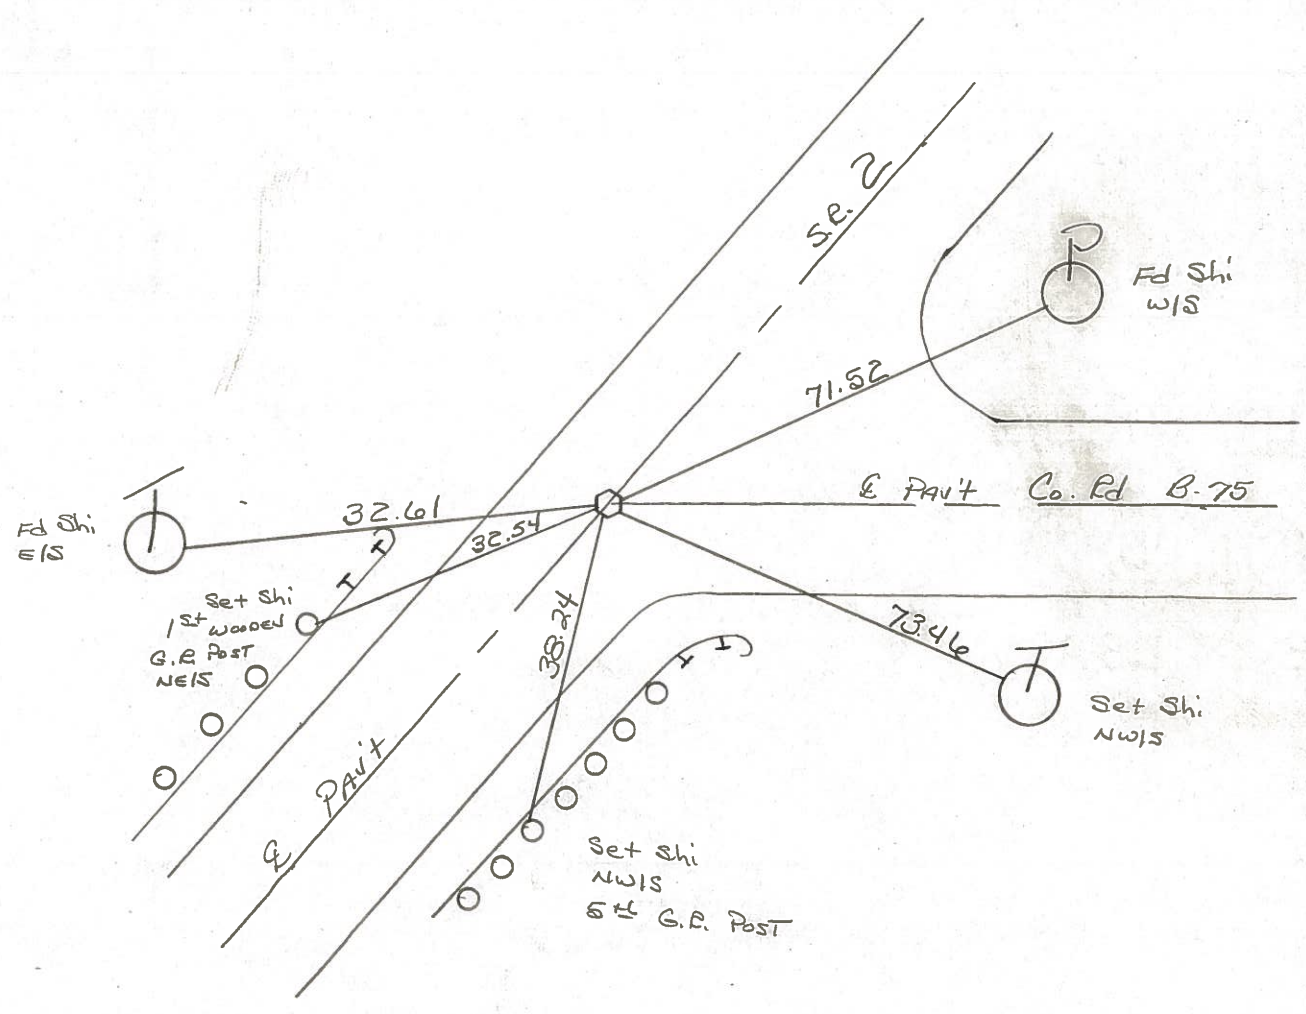 S.R. 2
P
Fd Shi
W/S
71.52
℄ PAV't Co. Rd B-75
32.61
Fd Shi
E/S
32.54
Set Shi
1st WOODEN
G.R. POST
NE/S
38.24
73.46
Set Shi
NW/S
℄ PAV't
Set Shi
NW/S
5th G.R. POST